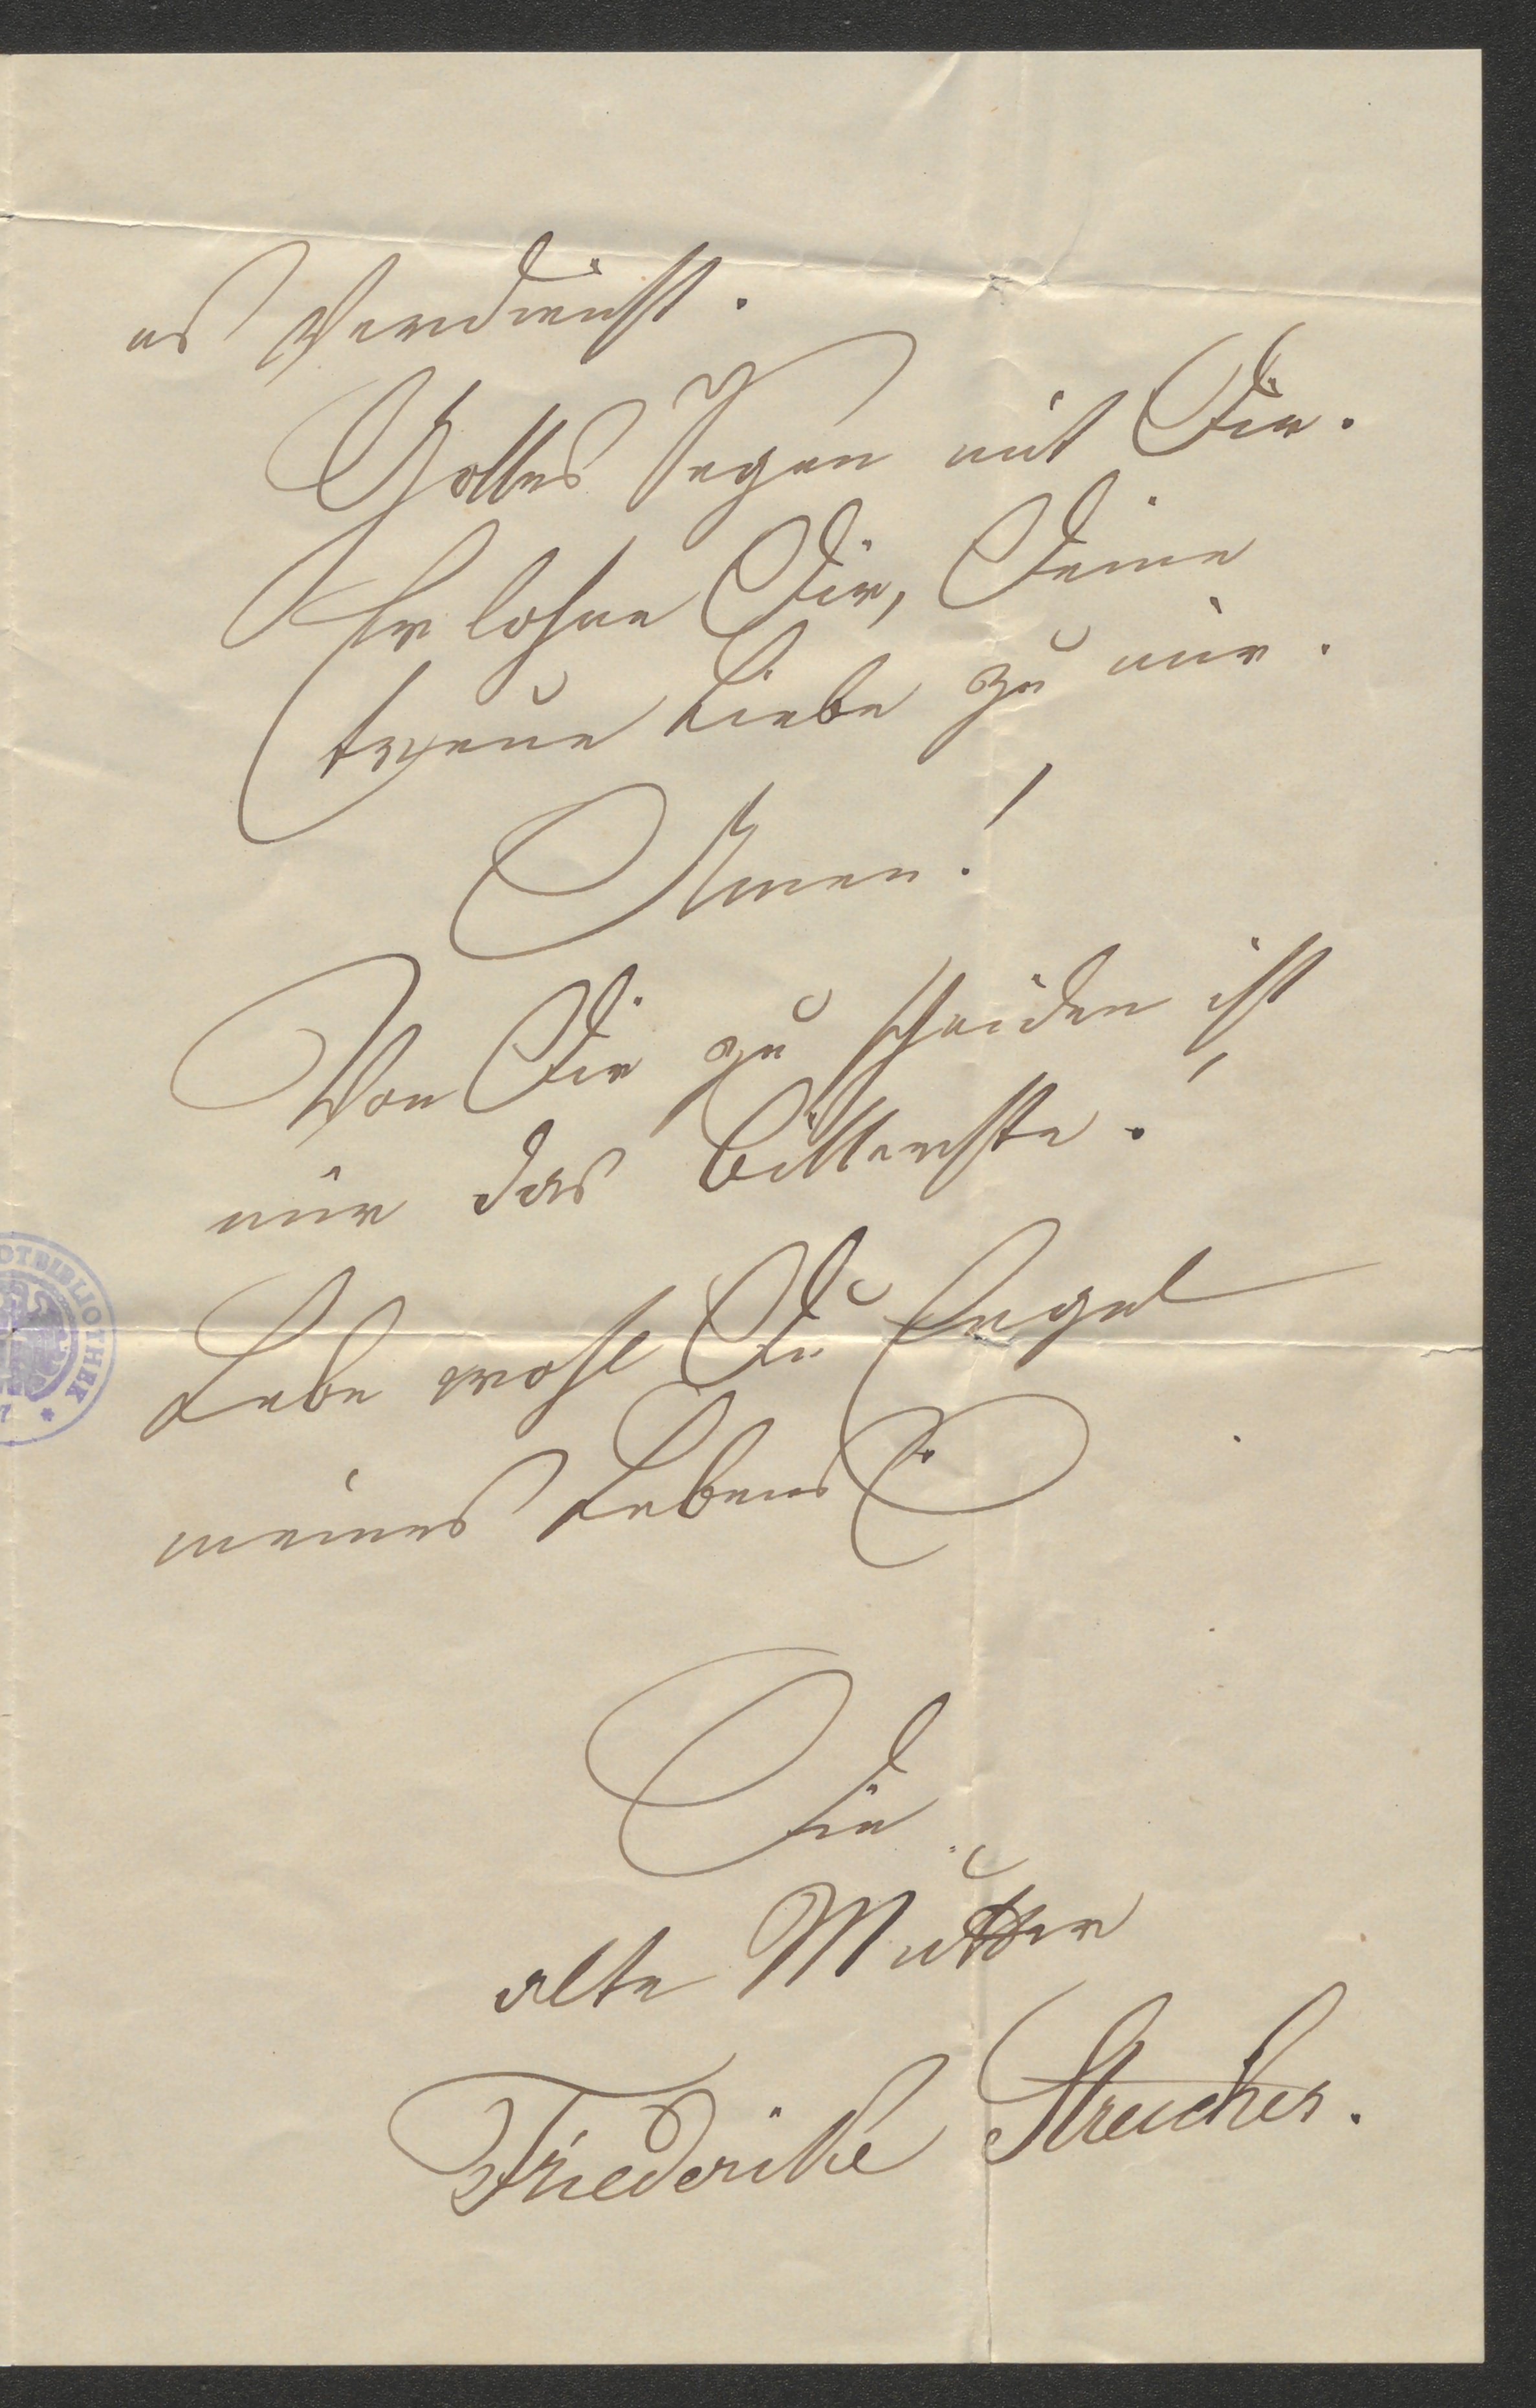 es Verdienst.
Gottes Segen mit Dir.
Er lohne Dir, Deine
treue Liebe zu mir.
Amen!
Von Dir zu scheiden ist
mir das Bitterste!
Lebe wohl Du Engel
meines Lebens
Die
alte Mutter
Friederike Streicher.
OTBIBLIOTHEK
7 *